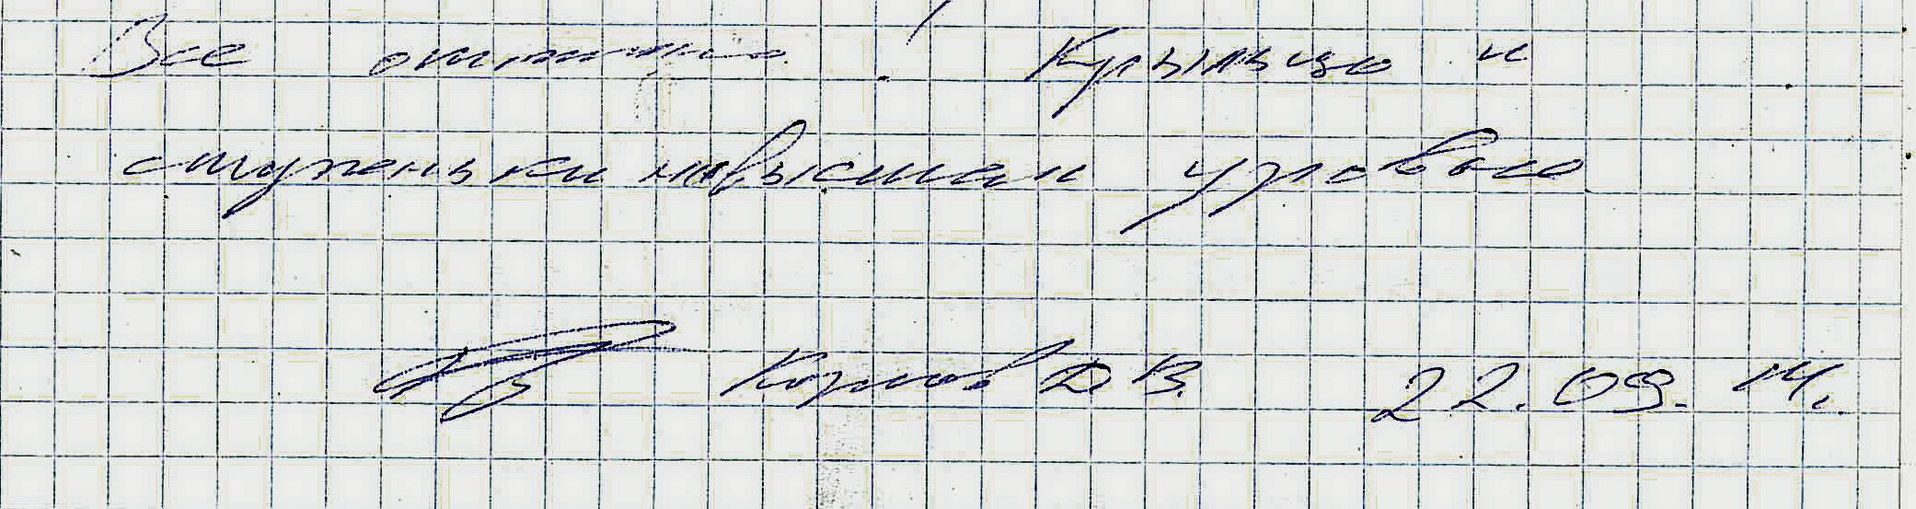 Все отлично! Крыльцо и
ступеньки на высшем уровне
Д В. 22.09.14.